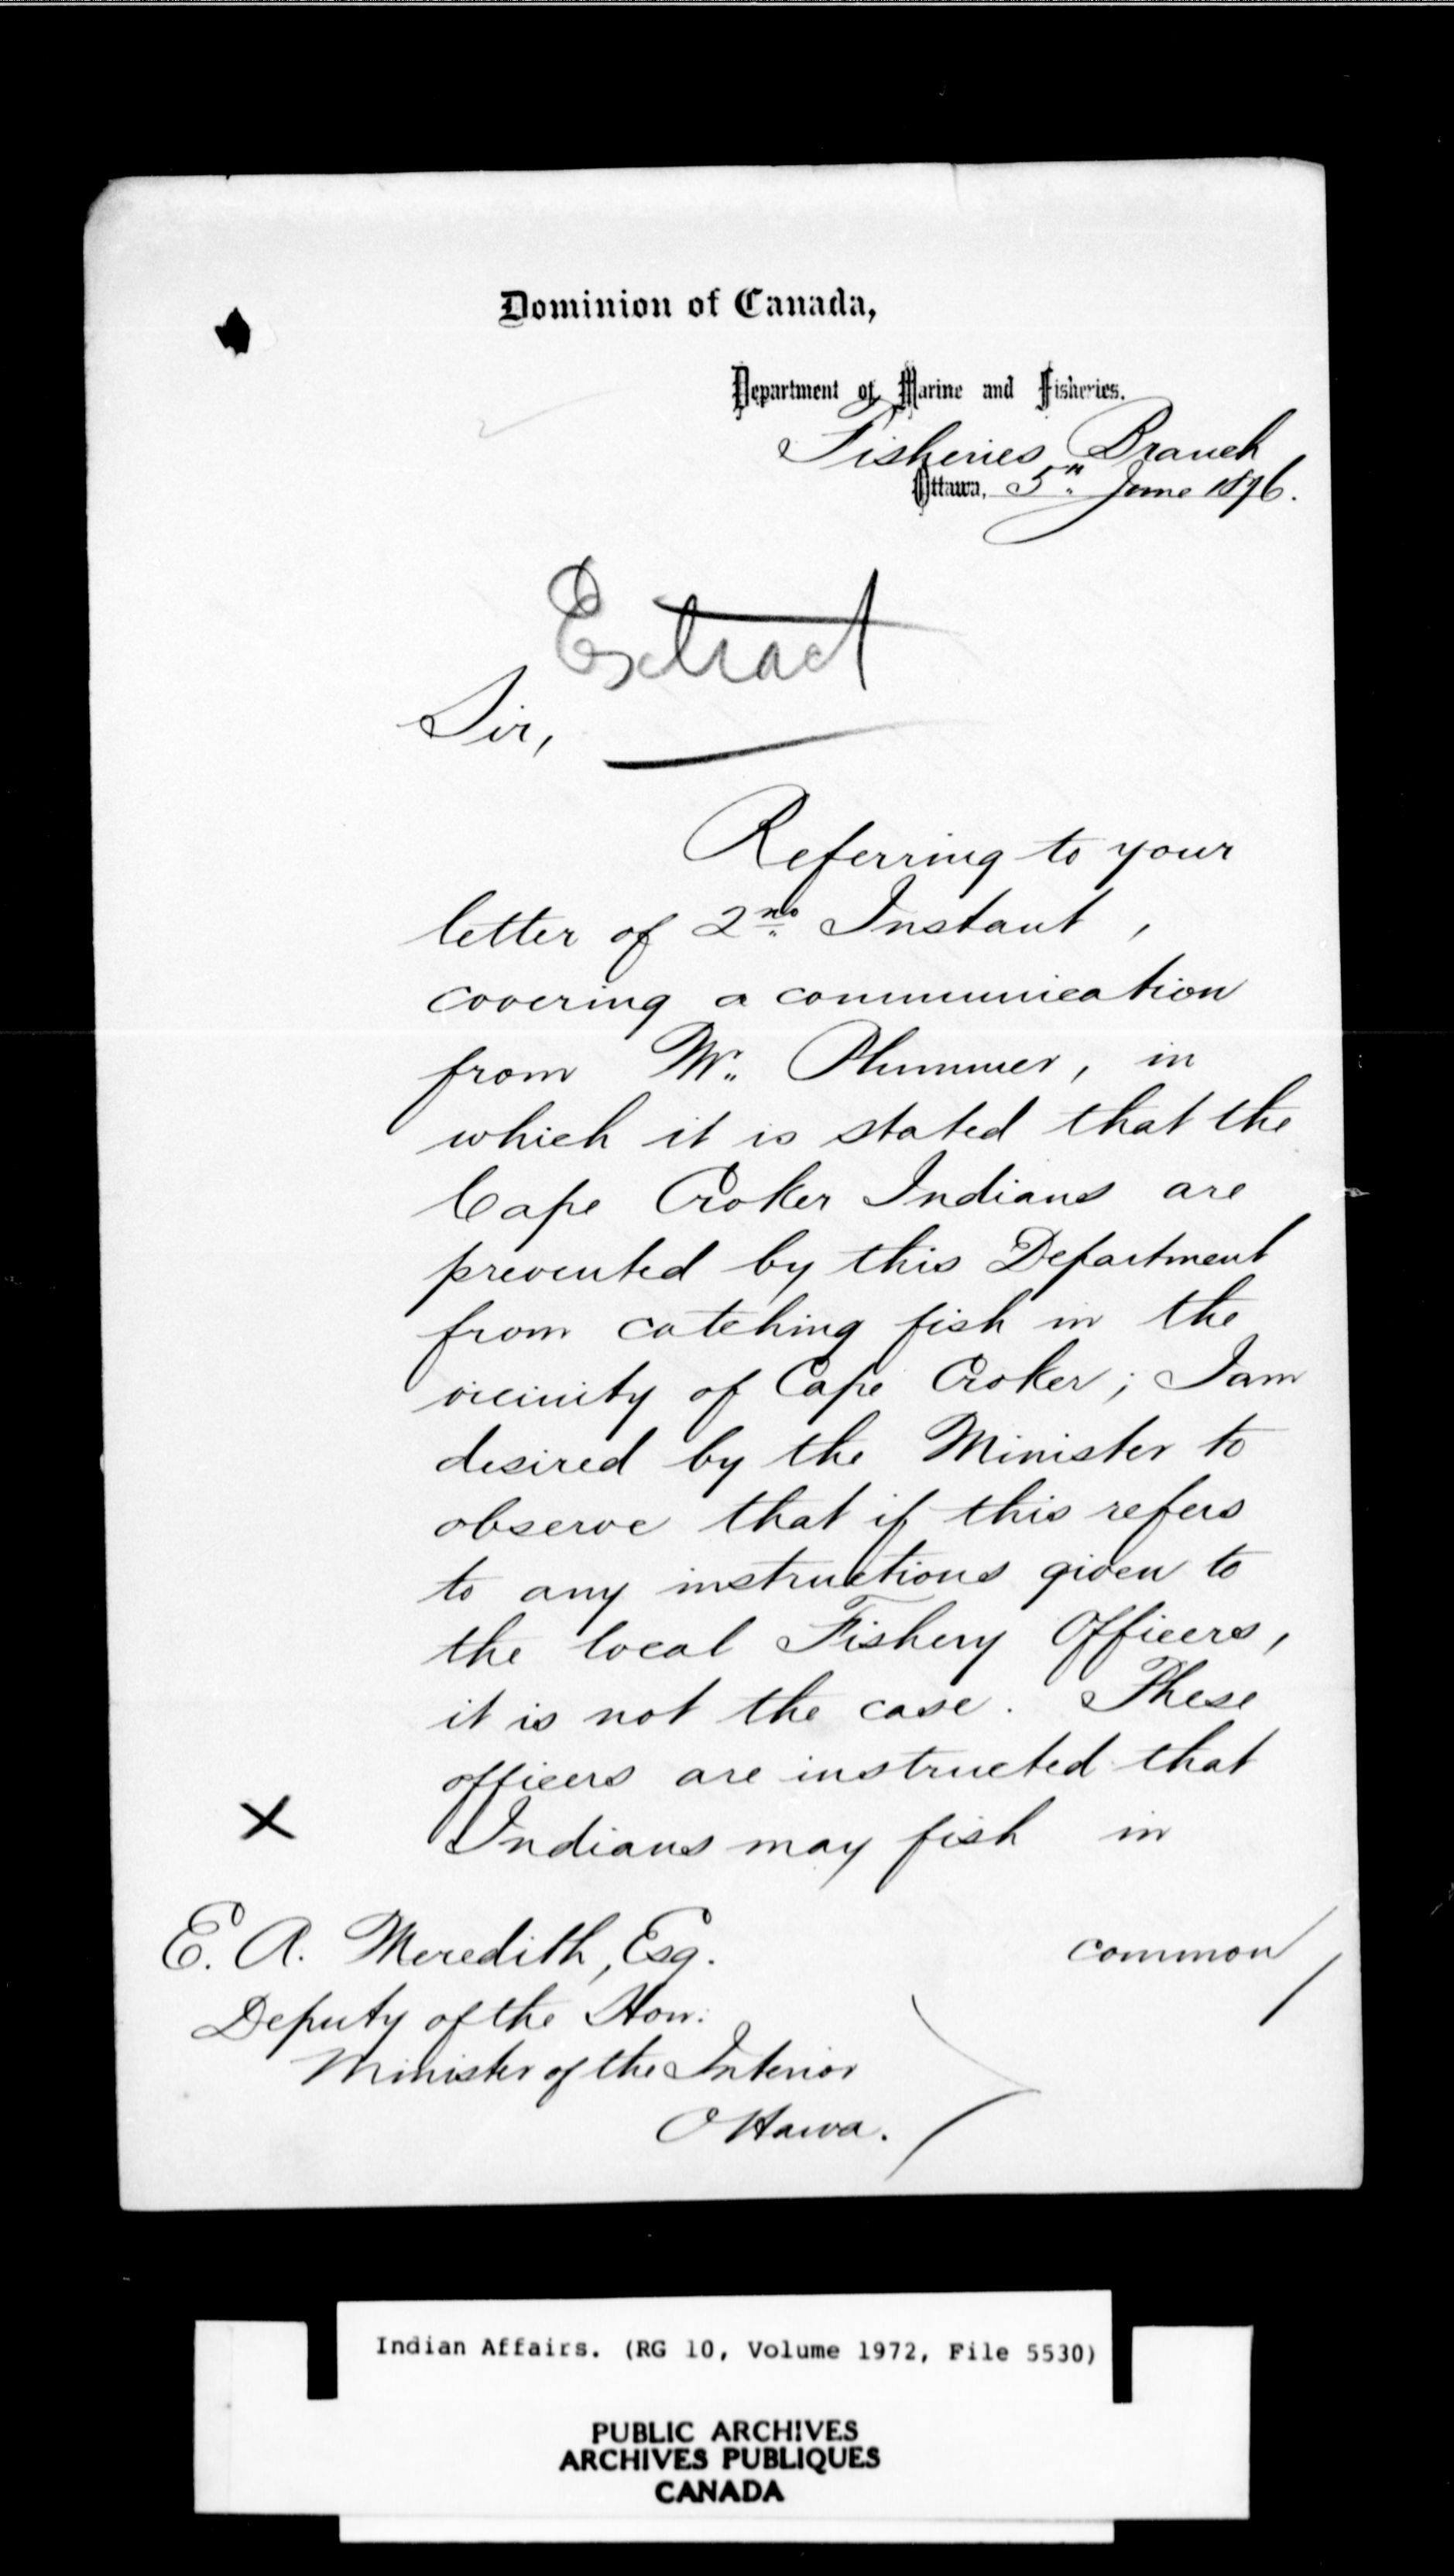 Dominion of Canada,
Department of Marine and Fisheries.
Fisheries Branch
Ottawa, 5th June 1876.
Extract
Sir,
Referring to your
letter of 2nd Instant,
covering a communication
from Mr. Plummer, in
which it is stated that the
Cape Croker Indians are
prevented by this Department
from catching fish in the
vicinity of Cape Croker; I am
desired by the Minister to
observe that if this refers
to any instructions given to
the local Fishery Officers,
it is not the case. These
officers are instructed that
X Indians may fish in
common/
E. A. Meredith, Esq.
Deputy of the Hon:
Minister of the Interior
Ottawa.
Indian Affairs. (RG 10, Volume 1972, File 5530)
PUBLIC ARCHIVES
ARCHIVES PUBLIQUES
CANADA